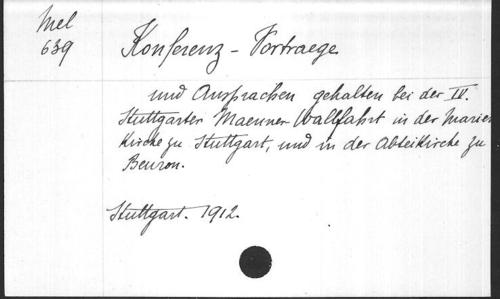 Mel
639
Konferenz-Vortraege
und Ansprachen gehalten bei der IV.
Stuttgarter Maenner-Wallfahrt in der Marien
Kirche zu Stuttgart, und in der Abteikirche zu
Beuron.
Stuttgart. 1912.